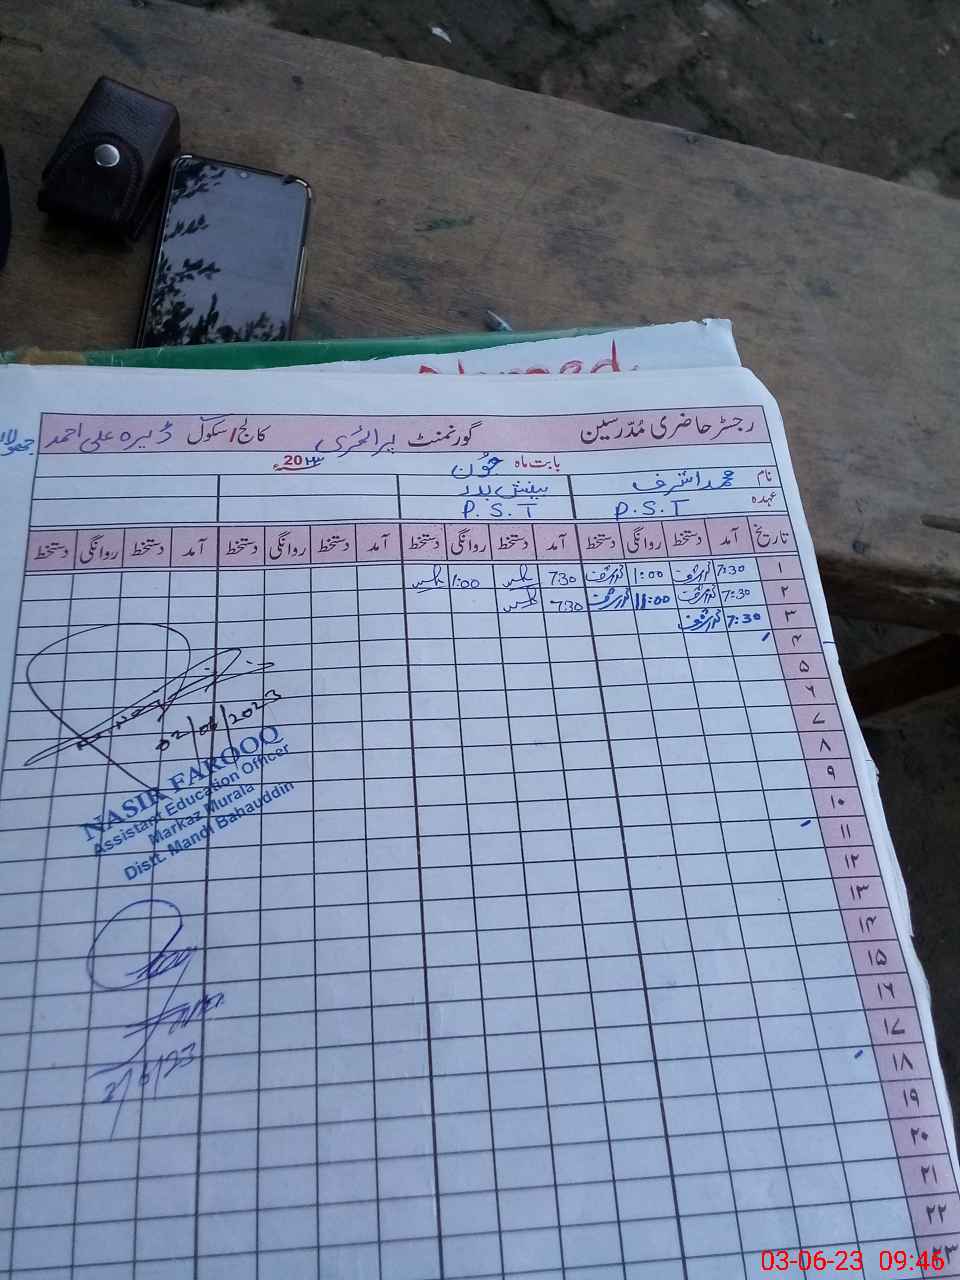 Ahmed
رجسٹر حاضری مُدّرسین گورنمنٹ پرائمری کالج/سکول ڈیرہ علی احمد
بابت ماہ جون 20۲۳ء
نام محمد اشرف بینش بدر
عہدہ P.S.T P.S.T
تاریخ آمد دستخط روانگی دستخط آمد دستخط روانگی دستخط آمد دستخط روانگی دستخط آمد دستخط روانگی دستخط
۱ 7:30 1:00 7:30 1:00
۲ 7:30 11:00 7:30
۳ 7:30
۴
۵
۶
۷
۸
۹
۱۰
۱۱
۱۲
۱۳
۱۴
۱۵
۱۶
۱۷
۱۸
۱۹
۲۰
۲۱
۲۲
۲۳
02/06/2023
NASIR FAROOQ
Assistant Education Officer
Markaz Murala
Distt. Mandi Bahauddin
2/6/23
03-06-23 09:46